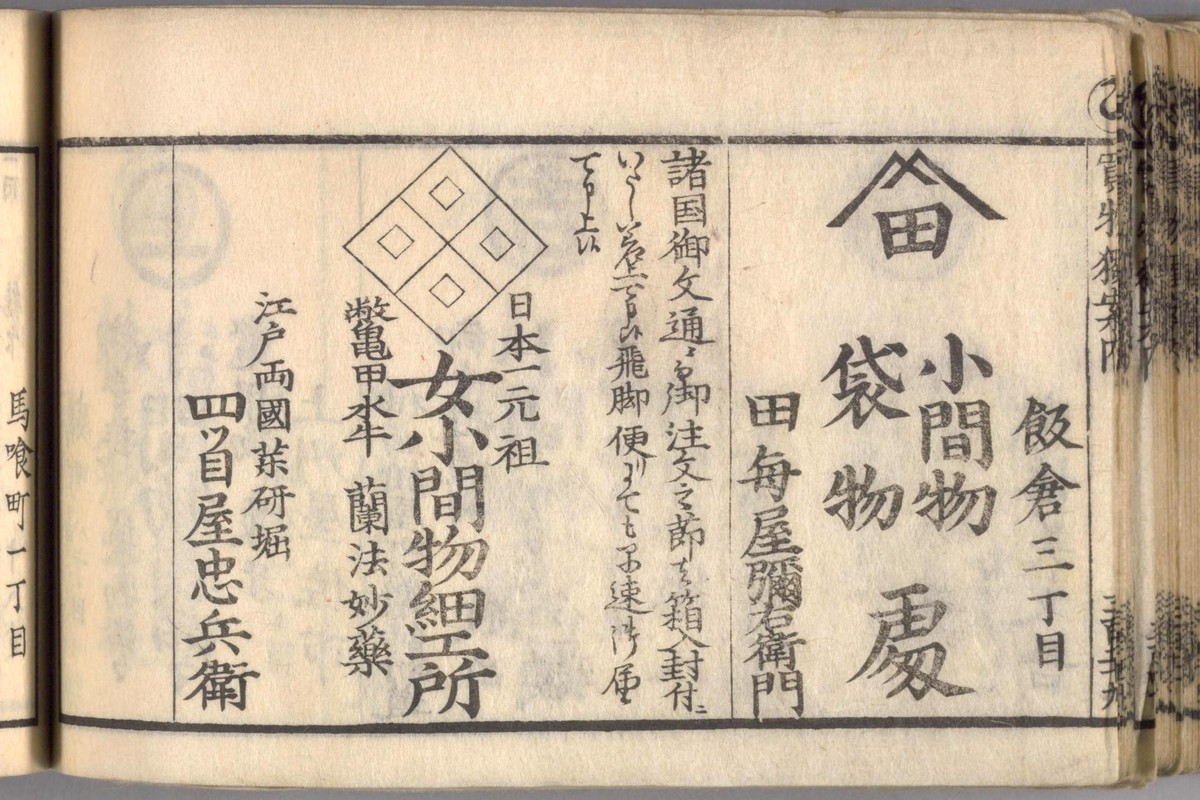 ひ
買物獨案内
飯倉三丁目
田
小間物
袋物
處
田毎屋彌右衛門
諸国御文通ニ而御注文之節者箱入封付ニ
いたし差上可申候飛脚便りにても早速御届
可申上候
日本一元祖
女小間物細工所
鼈亀甲水牛 蘭法妙藥
江戸両國薬研堀
四ツ目屋忠兵衛
馬喰町一丁目